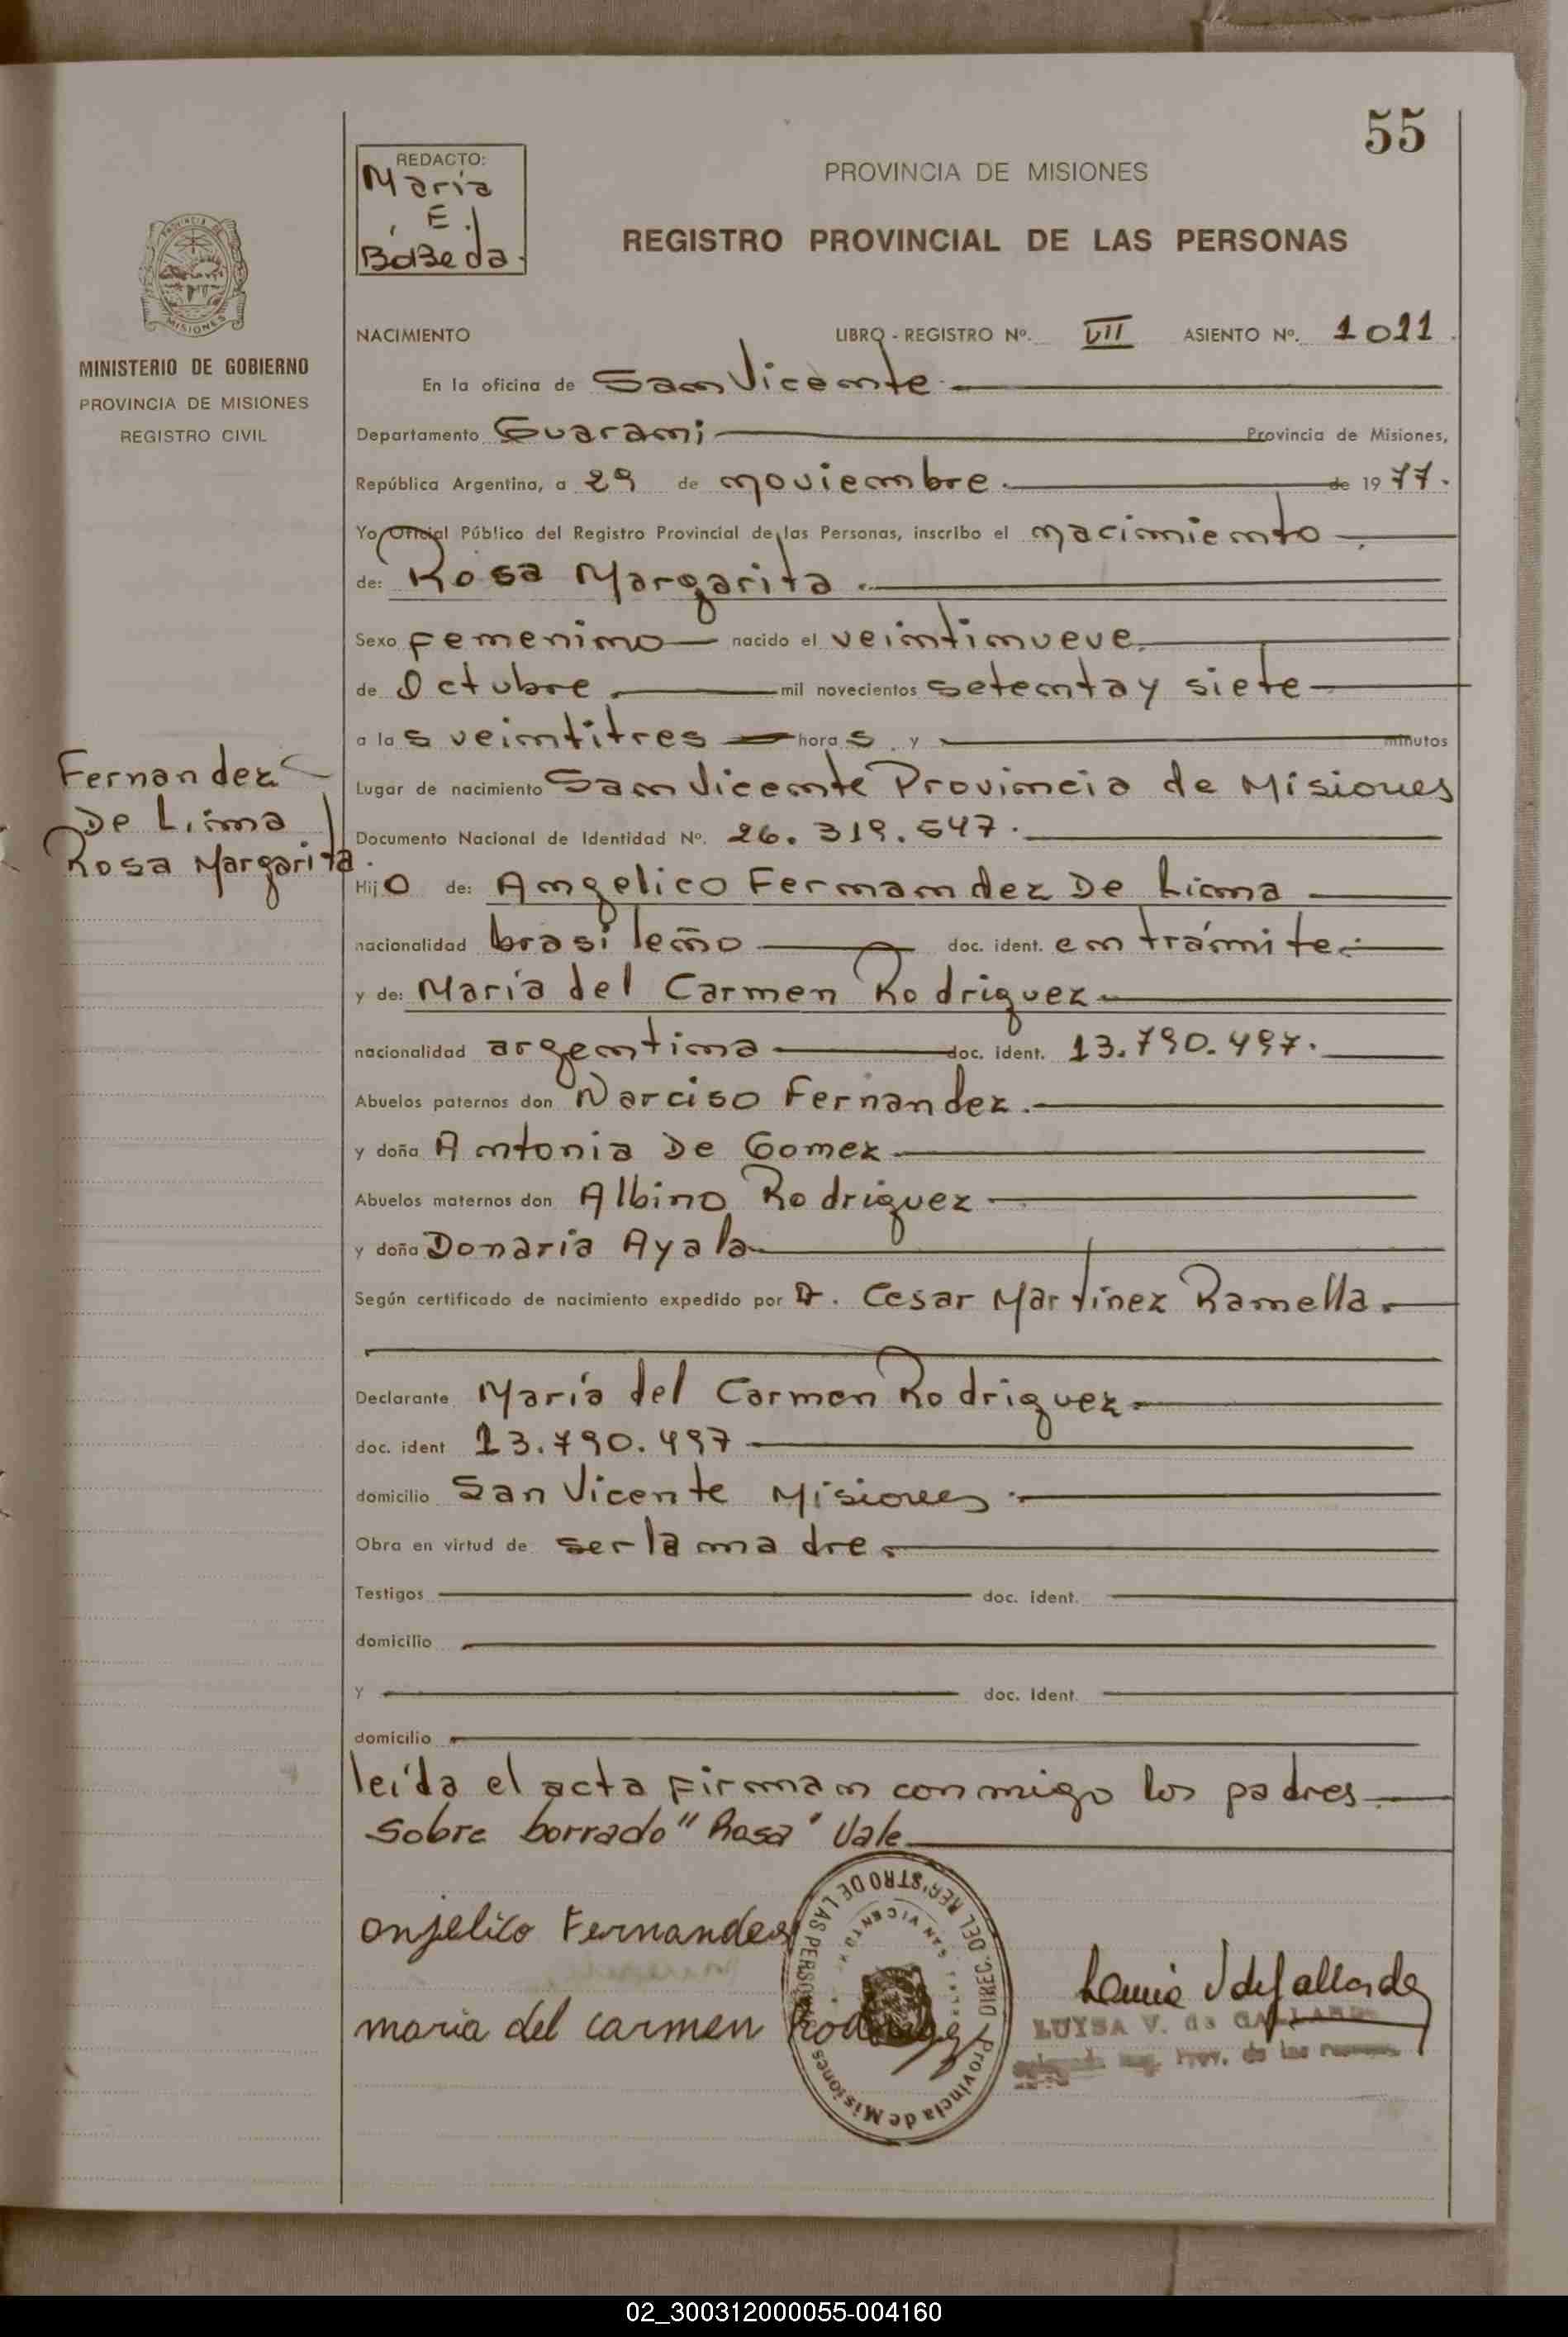 55
REDACTO:
María
E.
BdBeda.
PROVINCIA DE MISIONES
REGISTRO PROVINCIAL DE LAS PERSONAS
MISIONES
MINISTERIO DE GOBIERNO
PROVINCIA DE MISIONES
REGISTRO CIVIL
NACIMIENTO LIBRO - REGISTRO Nº. VII ASIENTO Nº. 1011
En la oficina de San Vicente
Departamento Guarani Provincia de Misiones,
República Argentina, a 29 de noviembre. de 1977.
Yo Oficial Público del Registro Provincial de las Personas, inscribo el nacimiento
de: Rosa Margarita.
Sexo femenino nacido el veintinueve
de Octubre mil novecientos setenta y siete
a las veintitres horas y minutos
Lugar de nacimiento San Vicente Provincia de Misiones
Documento Nacional de Identidad Nº. 26.319.547.
Fernandez
De Lima
Rosa Margarita.
Hijo de: Angelico Fernandez De Lima
nacionalidad brasileño doc. ident. en trámite.
y de: María del Carmen Rodriguez
nacionalidad argentina doc. ident. 13.790.497.
Abuelos paternos don Narciso Fernandez.
y doña Antonia De Gomez
Abuelos maternos don Albino Rodriguez
y doña Donaria Ayala
Según certificado de nacimiento expedido por Dr. Cesar Martínez Ramella.
Declarante María del Carmen Rodriguez
doc. ident 13.790.497
domicilio San Vicente Misiones
Obra en virtud de ser la madre.
Testigos doc. ident.
domicilio
y doc. Ident.
domicilio
leída el acta firman conmigo los padres
Sobre borrado "Rosa" Vale
onjelico Fernandes
maria del carmen Rodriguez
DIREC. DEL REGISTRO DE LAS PERSONAS
SAN VICENTE
Provincia de Misiones
LUYSA V. de GALLARDO
Prov. de las
02_300312000055-004160